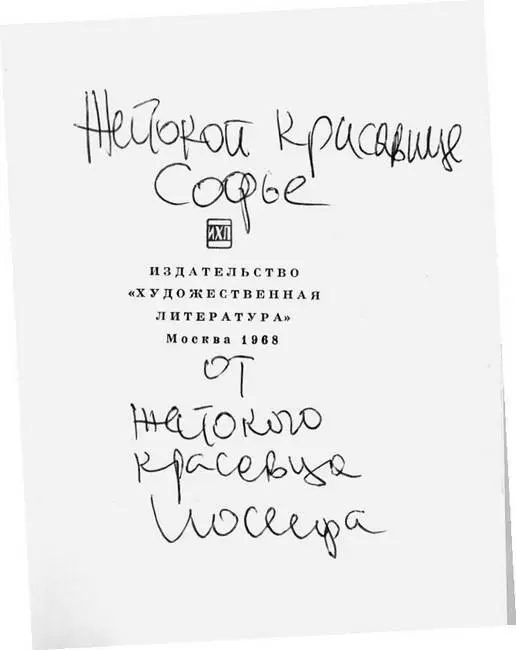 Жейокой красавице
Софье
ИХЛ
ИЗДАТЕЛЬСТВО
«ХУДОЖЕСТВЕННАЯ
ЛИТЕРАТУРА»
Москва 1968
от
жейокого
красавца
Иосифа